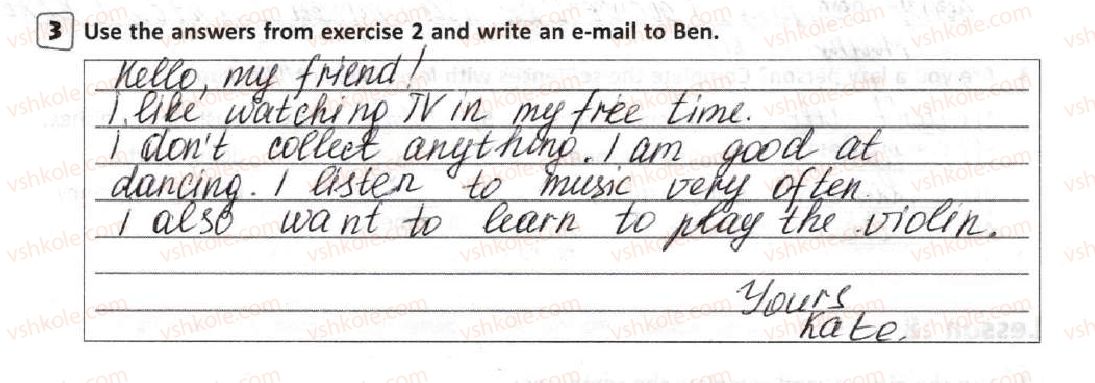 3 Use the answers from exercise 2 and write an e-mail to Ben.
Hello, my friend!
I like watching TV in my free time.
I don't collect anything. I am good at
dancing. I listen to music very often.
I also want to learn to play the violin.
Yours
Kate.